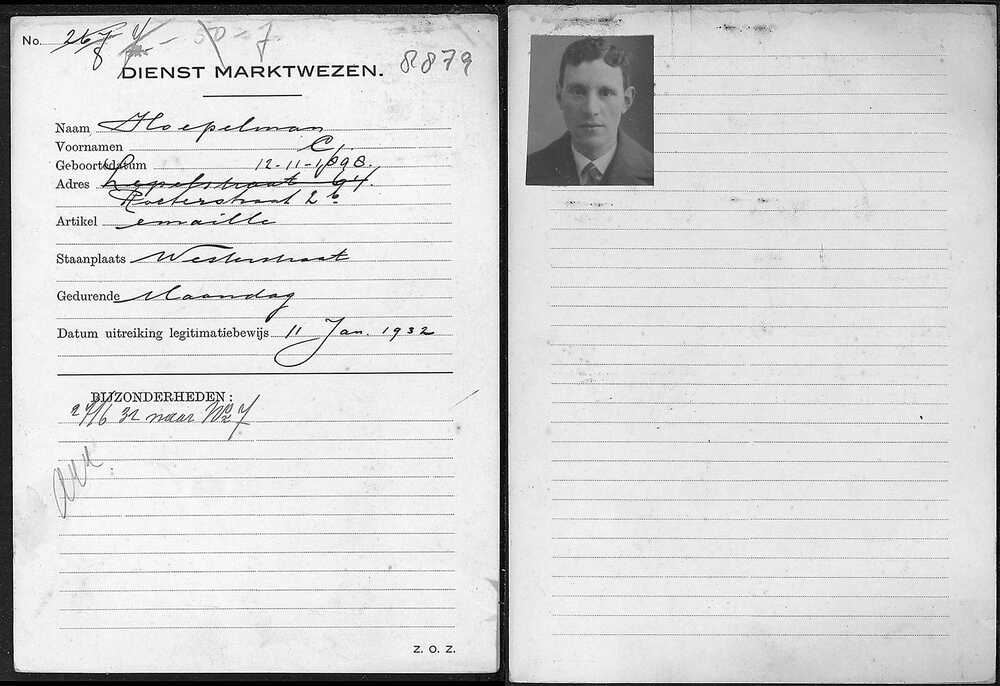 No. 267
8
50 - 7.
DIENST MARKTWEZEN. 8879
Naam Hoepelman
Voornamen C.
Geboortedatum 12-11-1898.
Adres Lepelstraat 64.
Roeterstraat 2 b
Artikel emaille
Staanplaats Westerstraat
Gedurende Maandag
Datum uitreiking legitimatiebewijs 11 Jan. 1932
BIJZONDERHEDEN:
32 naar No 7
Z. O. Z.